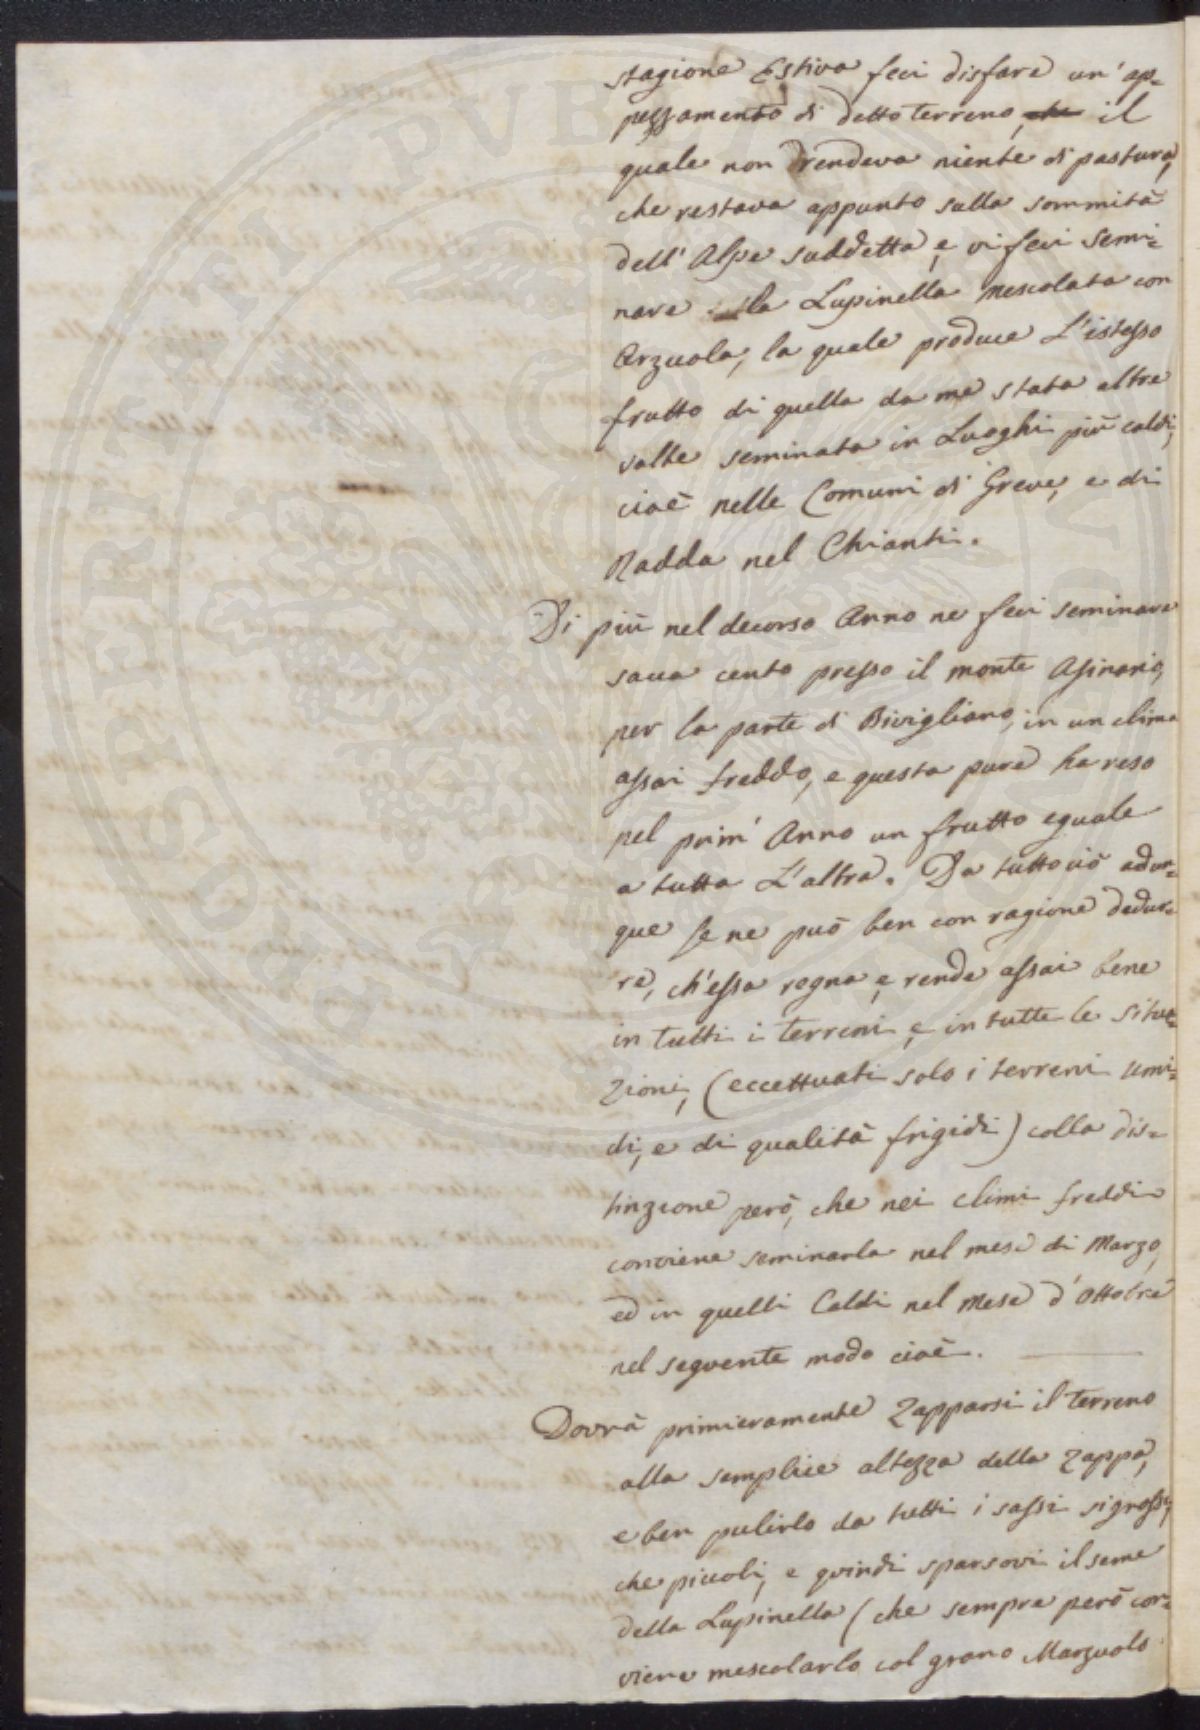 stagione Estiva feci disfare un' ap=
pezzamento di detto terreno, che il
quale non rendeva niente di pastura,
che restava appunto sulla sommità
dell' Alpe suddetta, e vi feci semi=
nare la Lupinella mescolata con
Orzuola, la quale produce l'istesso
frutto di quella da me stata altre
volte seminata in Luoghi più caldi,
cioè nelle Comuni di Greve, e di
Radda nel Chianti.
Di più nel decorso Anno ne feci seminare
sacca cento presso il monte Asinario,
per la parte di Bivigliano, in un clima
assai freddo, e questa pure ha reso
nel prim' Anno un frutto eguale
a tutta L'altra. Da tutto ciò adun=
que se ne può ben con ragione dedur=
re, ch'essa regna e, rende assai bene
in tutti i terreni, e in tutte le situa=
zioni, (eccettuati solo i terreni umi=
di, e di qualità frigidi) colla dis=
tinzione però, che nei climi freddi
conviene seminarla nel mese di Marzo,
ed in quelli Caldi nel mese d'Ottobre
nel seguente modo cioè.
Dovrà primieramente Zapparsi il terreno
alla semplice altezza della Zappa,
e ben pulirlo da tutti i sassi si grossi,
che piccoli, e quindi sparsovi il seme
della Lupinella (che sempre però con=
viene mescolarlo col grano Marzuolo